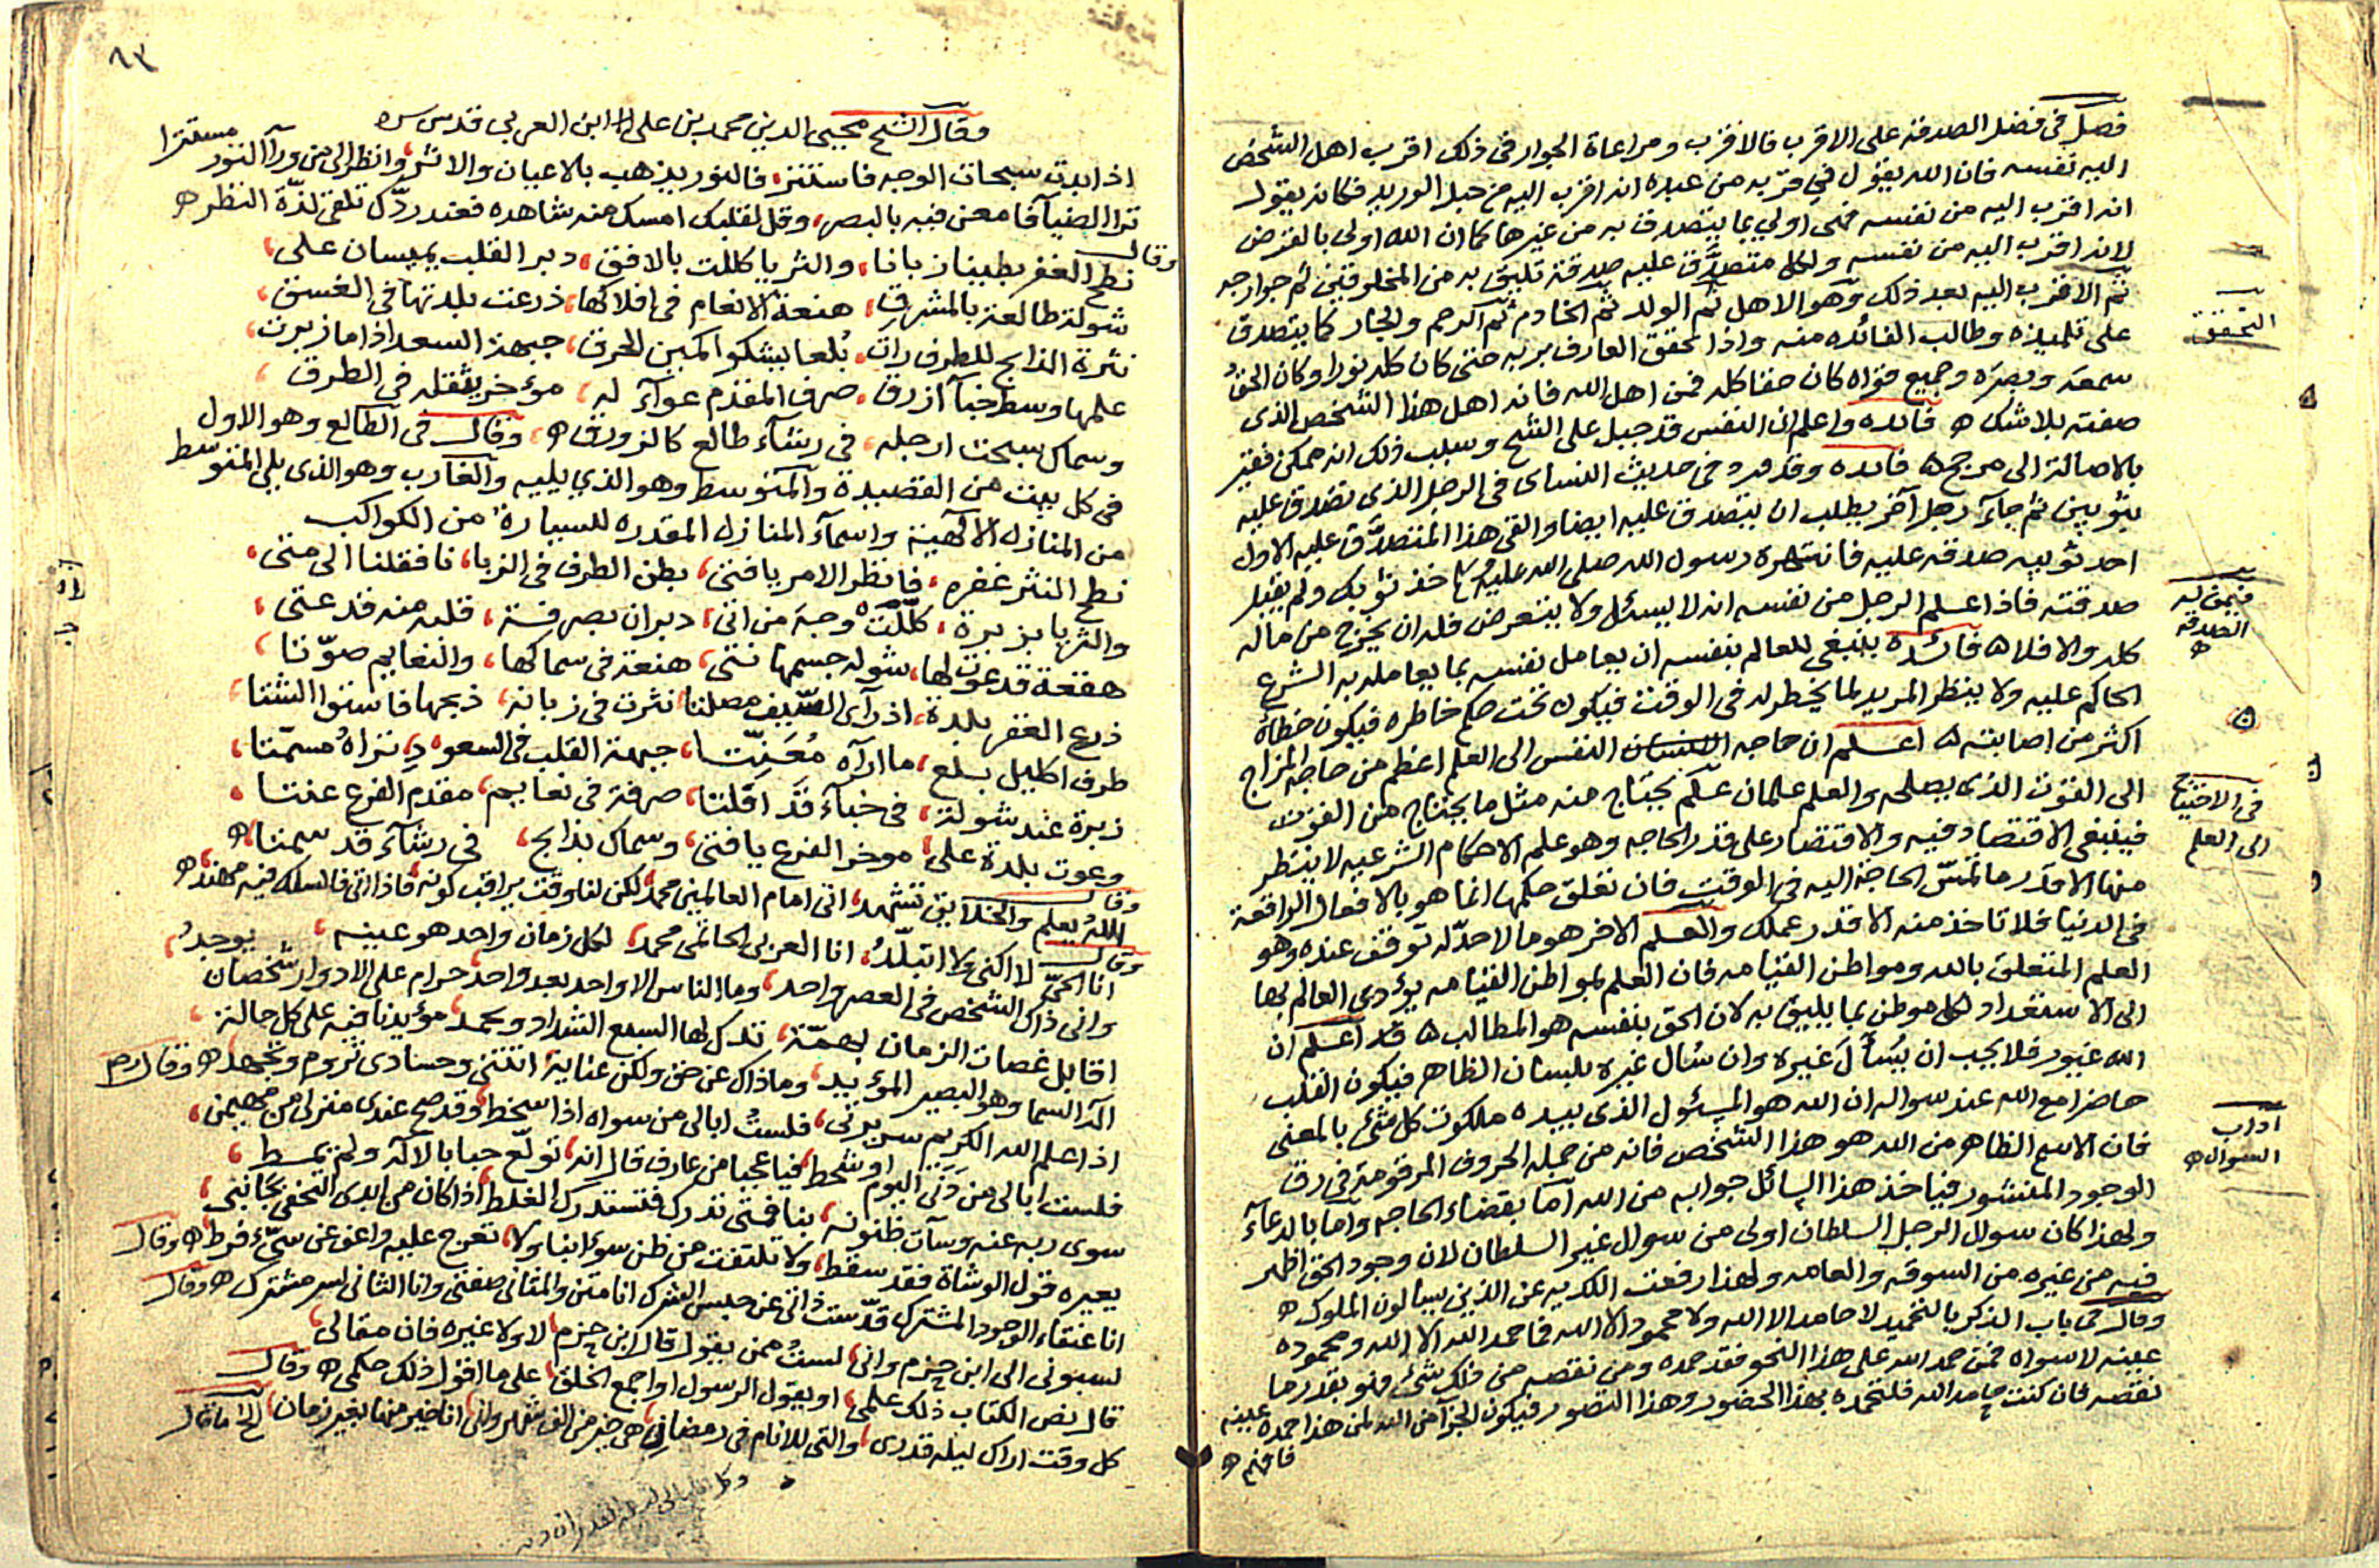 فصل في فضل الصدقة على الاقرب فالاقرب ومراعاة الجوار في ذلك اقرب اهل الشخص
اليه نفسه فان الله يقول في قربه من عبده انه اقرب اليه من حبل الوريد فكانه يقول
انه اقرب اليه من نفسه فهي اولي بما يتصدق به من غيرها كما ان الله اولي بالقرض
لانه اقرب اليه من نفسه ولكل متصدق عليه صدقة تليق به من المخلوقين ثم جوارحه
ثم الاقرب اليه بعد ذلك وهو الاهل ثم الولد ثم الخادم ثم الرحم والجار كما يتصدق
على تلميذه وطالب الفائده منه واذا تحقق العارف بربه حتى كان كله نورا وكان الحق
سمعه وبصره وجميع قواه كان حقا كله فمن اهل الله فانه اهل هذا الشخص الذي
صفته بلا شك ه فائده واعلم ان النفس قد جبل على الشح وسبب ذلك انه ممكن فقير
بالاصالة الى مرجح ه فائده وقد ورد في حديث النساى في الرجل الذي تصدق عليه
بثوبين ثم جآء رجل آخر يطلب ان يتصدق عليه ايضا والقى هذا المتصدق عليه الاول
احد ثوبيه صدقة عليه فانتهره رسول الله صلى الله عليه خذ ثوبك ولم يقبل
صدقته فاذا اعلم الرجل من نفسه انه لا يسئل ولا يتعرض فله ان يخرج من ماله
كله والا فلا ه فائده ينبغي للعالم بنفسه ان يعامل نفسه بما يعامله به الشرع
الحاكم عليه ولا ينظر المريد لما يخطر له في الوقت فيكون تحت حكم خاطره فيكون خطاؤه
اكثر من اصابته ه اعلم ان حاجة النفس الى العلم اعظم من حاجة المزاج
الى القوت الذي يصلحه والعلم علمان علم يحتاج منه مثل ما يحتاج من القوت
فينبغي الاقتصاد فيه والاقتصار على قدر الحاجه وهو علم الاحكام الشرعيه لا ينظر
منها الا قدر ما تمس الحاجة اليه في الوقت فان تعلق حكمها انما هو بالافعال الواقعة
في الدنيا فلا تاخذ منه الا قدر عملك والعلم الاخر هو ما لا حد له توقف عنده وهو
العلم المتعلق بالله ومواطن القيامه فان العلم بمواطن القيامه يؤدي العالم بها
الى الاستعداد لكل موطن بما يليق به لان الحق بنفسه هو المطالب ه قد اعلم ان
الله غيور فلا يحب ان يسأل غيره وان سُال غيره بلسان الظاهر فيكون القلب
حاضرا مع الله عند سواله ان الله هو المسئول الذي بيده ملكوت كل شئ بالمعنى
فان الاسم الظاهر من الله هو هذا الشخص فانه من جمله الحروف المرقومة في رق
الوجود المنشور فياخذ هذا السائل جوابه من الله اما بقضاء الحاجه واما بالدعآء
ولهذا كان سوال الرجل السلطان اولى من سوال غير السلطان لان وجود الحق اظهر
فيه من غيره من السوقه والعامه ولهذا رفعت الكديه عن الذين يسالون الملوك ه
وقال في باب الذكر بالتحميد لا حامد الا الله ولا محمود الا الله فما حمد الله الا الله ومحموده
عينه لا سواه فمن حمد الله على هذا النحو فقد حمده ومن نقصه من ذلك شئ فهو بقدر ما
نقصه فان كنت حامد الله فلتحمده بهذا الحضور وهذا التصور فيكون الجزآء من الله لمن هذا حمده عينه
فافهم ه
التحقق
الصدقه
في الاحتياج
الى العلم
اداب
السوال ه
٨٣
وقال الشيخ محيي الدين محمد بن علي ابن العربي قدس سره
اذا ابدت سبحات الوجه فاستتر، فالنور يذهب بالاعيان والاثر، وانظر الى من ورآ النور مستترا
ترا الضيآ فامعن فيه بالبصر، وقل لقلبك امسك منه شاهده فعند ردّك تلقى لذّة النظر ه
وقال
نطح الغفر بطينا زبانا، والثريا كللت بالافق، دبر القلب بميسان على،
شولة طالعة بالمشرق، هنعة الانعام في افلاكها، ذرعت بلدتها في الغسق،
نثرة الذابح للطرف رات، بُلعا يشكو اكمين الحرق، جبهة السعد اذا ما زبرت،
علمها وسط خبآ ازرق، صرف المقدم عوآء له، مؤخر يثقله في الطرق،
وسماك سبحت ارجله، في رشآء طالع كالزورق ه، وقال في الطالع وهو الاول
في كل بيت من القصيدة والمتوسط وهو الذي يليه والغارب وهو الذي يلي المتوسط
من المنازل الالهية واسمآء المنازل المقدره للسيارة من الكواكب
نطح النثر غفره، فانظر الامر يا فتى، بطن الطرف في الزبا، نا فقلنا الى متى،
والثريا بزبرة، كللت وجه من اتى، دبران بصرفة، قلبه منه قد عتى،
هقعة قد عوت لها، شوله جسمها نتى، هنعة في سماكها، والنعايم صوّتا،
ذرع الغفر بلدة، اذ رآى الصيف مصلتا، نثرت في زبانه، ذبحها فاستوا الشتا،
طرف اكليل بلع، ما اراه مُعَنِّتا، جبهة القلب في السعود، تراه مسمّتا،
زبرة عند شولة، في خبآء قد افلتا، صرفة في نعايم، مقدم الفرع عنتا،
وعوت بلدة على، موخر الفرع يا فتى، وسماك بذابح، في رشآء قد سمتا ه
وقال
الله يعلم والخلايق تشهد، اني امام العالمين محمد، لكن لنا وقت يراقب كونه، فاذا اتى فالسلك فيه ممهد ه
وقال
انا الحق لا اكنى ولا اتبلّد، انا العربي الحاتمي محمد، لكل زمان واحد هو عينه، يوجد،
واني ذاك الشخص في العصر واحد، وما الناس الا واحد بعد واحد، حرام على الادوار شخصان
اقابل غصات الزمان بهمّة، تدك لها السبع الشداد وتحمد، مؤيدنا فيه على كل حالة،
اله السما وهو البصير المؤيد، وما ذاك عن حق ولكن عناية، انتنى وحسادى تروم وتجهد ه وقال
اذا علم الله الكريم سريرتى، فلست ابالى من سواه اذا سخط، وقد صح عندى منزلى من مهيمن،
فلست ابالى من دنى اليوم او شحط، فيا عجبا من عارف قال انه، تولّع حبا بالاله ولم يمط،
سوى ربه عنه وسآت ظنونه، بنا فمتى تدرك فتستدرك الغلط، اذا كان من ابدى التحفى بجانبى،
يعيره قول الوشاة فقد سقط، ولا تلتفت من ظن سوءا بنا ولا، تعرج عليه واعف عن سىّء فرط ه وقال
انا عنقاء الوجود المشترك، قدّست ذاتى عن حبس الشرك، انا متن والمثانى صفتى، وانا الثانى لسر مشترك ه وقال
نسبونى الى ابن حزم وانى، لست ممن يقول قال ابن حزم، لا ولا غيره فان مقالى،
قال نص الكتاب ذلك علمى، او يقول الرسول او اجمع الخلق، على ما اقول ذلك حكمى ه وقال
كل وقت اراك ليلة قدرى، والتى للانام في رمضان، هى خير من الف شهر وانى، انا خير منها بغير زمان، الخ ما قال